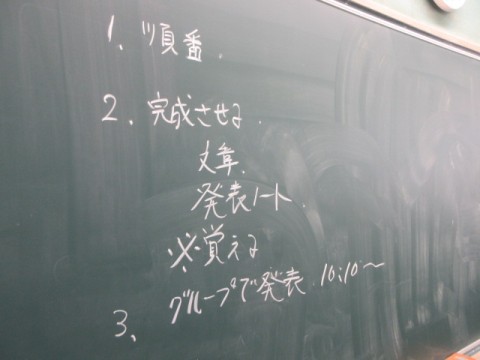 1、順番.
2、完成させる.
文章、
発表ノート
※覚える
3、グループで発表 10:10〜